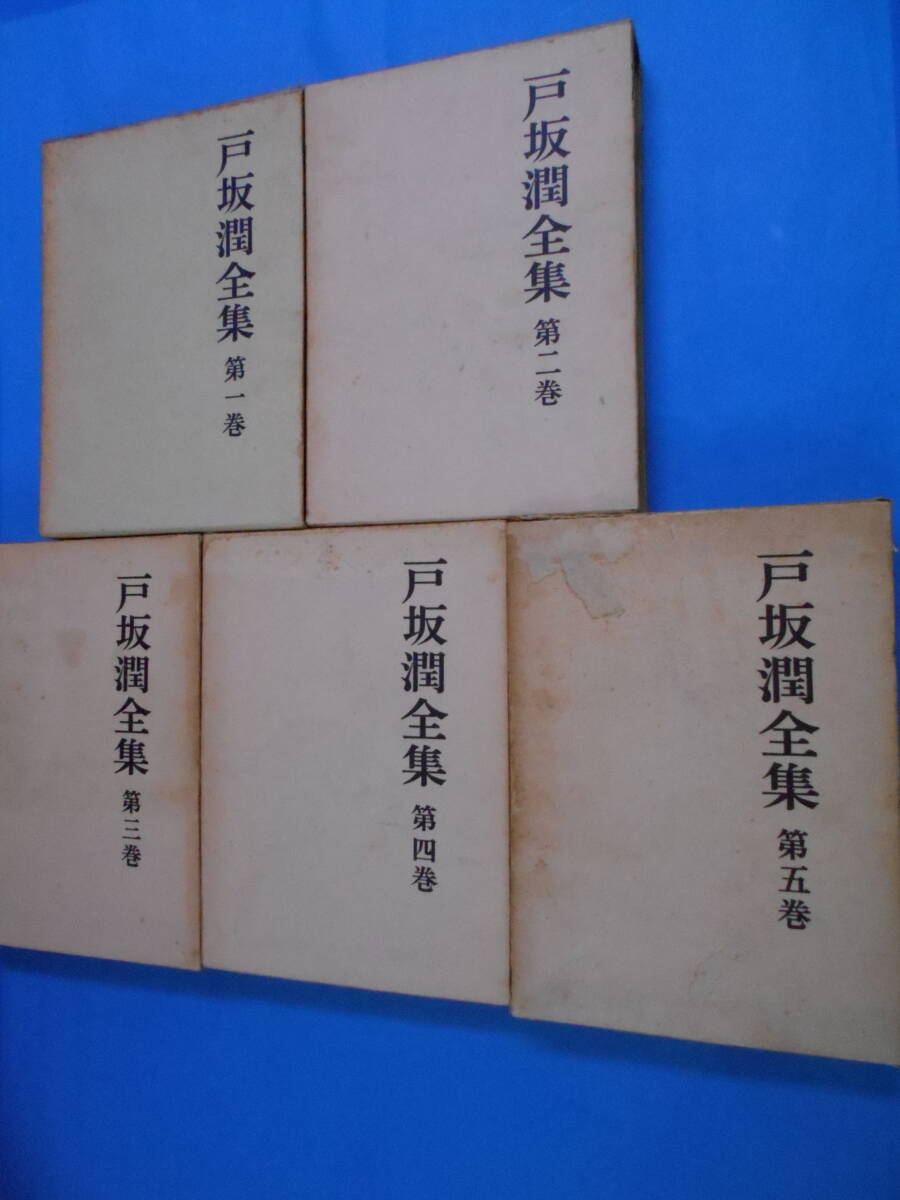 戸坂潤全集 第一巻
戸坂潤全集 第二巻
戸坂潤全集 第三巻
戸坂潤全集 第四巻
戸坂潤全集 第五巻